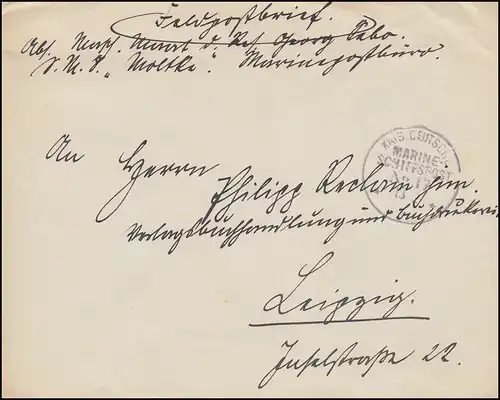 Feldpostbrief.
Abs. Masch. Maat d. Res. Georg
S. M. S. „Moltke". Marinepostbüro.
An Herrn
Philipp Reclam jun.
Verlagsbuchhandlung und Buchdruckerei
Leipzig.
Inselstraße 22.
KAIS. DEUTSCHE
MARINE-
SCHIFFSPOST